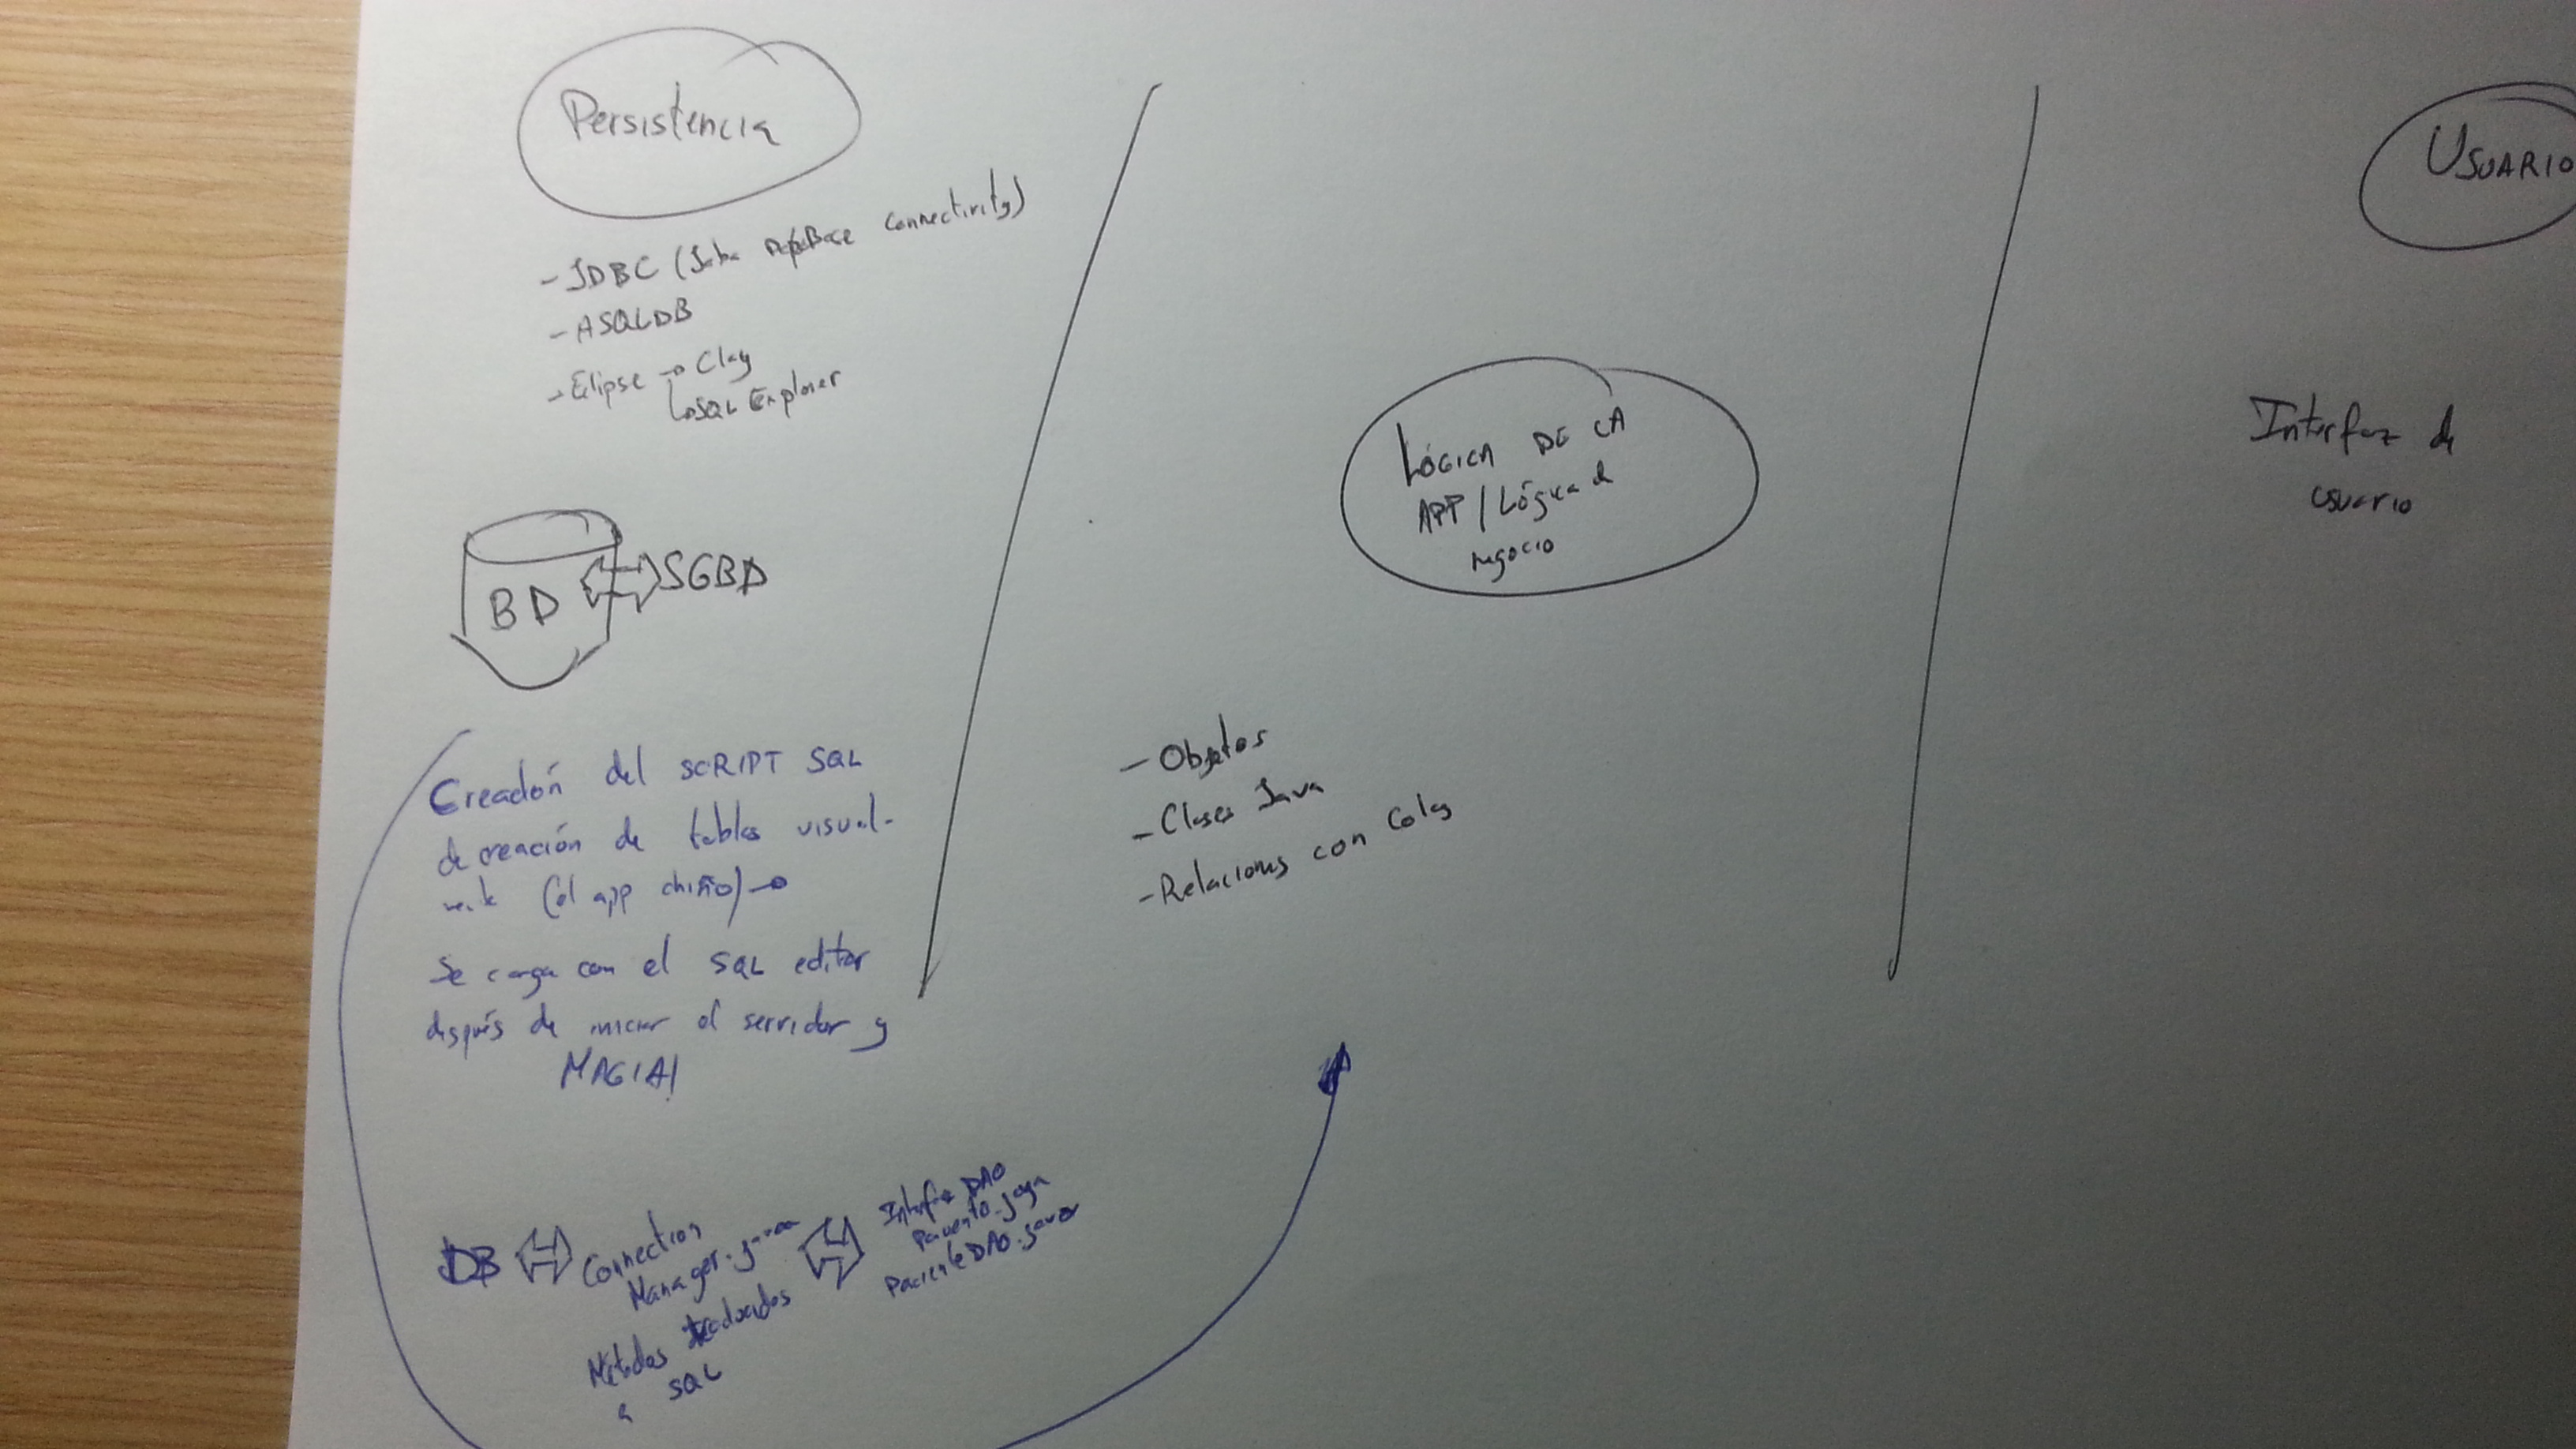 Persistencia
- JDBC (Java DataBase Connectivity)
- ASQLDB
- Eclipse → Clay
↳ SQL Explorer
BD ⇔ SGBD
Creación del SCRIPT SQL
de creación de tablas visual-
mente (el app chino) →
Se carga con el SQL editor
después de iniciar el servidor y
MAGIA!
DB ⇔ Connection
Manager.java ⇔
Métodos traducidos
a SQL
Interfaz DAO
PacienteDAO.java
LÓGICA DE LA
APP / Lógica de
negocio
- Objetos
- Clases Java
- Relaciones con Colas
USUARIO
Interfaz de
usuario